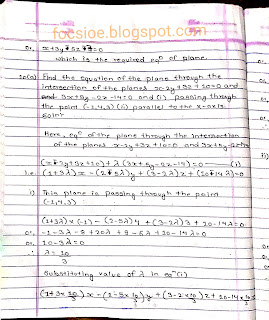 focsioe.blogspot.com
or, x+3y+5z+9=0
which is the required eqn of plane.
10(a) Find the equation of the plane through the
intersection of the planes x-2y+3z+10=0 and
3x+5y-2z-14=0 and (i) passing through
the point (-1,4,3) (ii) parallel to the x-axis
Soln
Here, eqn of the plane through the intersection
of the planes x-2y+3z+10=0 and 3x+5y-2z
(x-2y+3z+10)+λ(3x+5y-2z-14)=0 (i)
i.e. (1+3λ)x-(2-5λ)y+(3-2λ)z+(10-14λ)=0
i) This plane is passing through the point
(-1,4,3)
(1+3λ)×(-1)-(2-5λ)4+(3-2λ)3+10-14λ=0
or, -1-3λ-8+20λ+9-6λ+10-14λ=0
or, 10-3λ=0
∴ λ=10/3
Substituting value of λ in eqn(i)
(1+3×10/3)x-(2-5×10/3)y+(3-2×10/3)z+10-14×10/3